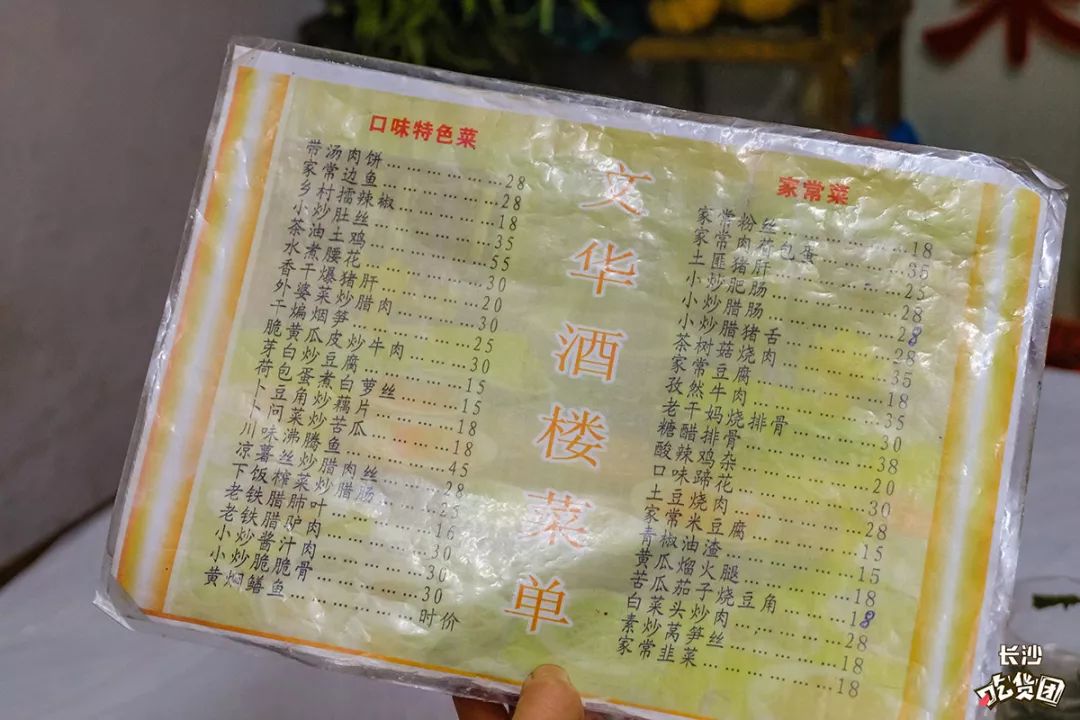 口味特色菜
带汤肉饼………………28
家常边鱼………………28
乡村擂辣椒……………18
小炒肚丝………………35
茶油土鸡………………55
水煮腰花………………30
香干爆猪肝……………20
外婆菜炒腊肉…………30
干煸烟笋………………25
脆黄瓜皮炒牛肉………30
芽白炒豆腐……………15
荷包蛋煮白萝丝………15
卜豆角炒藕片…………18
卜问菜炒苦瓜…………18
川味沸腾鱼……………45
凉薯丝炒腊肉丝………28
下饭榨菜炒腊肠………25
老铁腊肺叶……………16
老铁腊驴肉……………30
小炒酱汁肉……………30
小炒脆脆骨……………30
黄焖鳝鱼………………时价
文华酒楼菜单
家常菜
家常粉丝………………18
家常肉荷包蛋…………35
土匪猪肝………………25
小炒肥肠………………28
小炒腊肠………………28
小炒腊猪舌……………28
茶树菇烧肉……………35
家常豆腐………………18
孜然牛肉………………35
老干妈烧排骨…………30
糖醋排骨………………38
酸辣鸡杂………………20
口味蹄花………………30
土豆烧肉………………28
家常米豆腐……………15
青椒油渣………………15
黄瓜熘火腿……………18
苦瓜茄子烧豆角………18
白菜头炒肉……………28
素炒莴笋丝……………18
家常韭菜………………18
长沙
吃货团